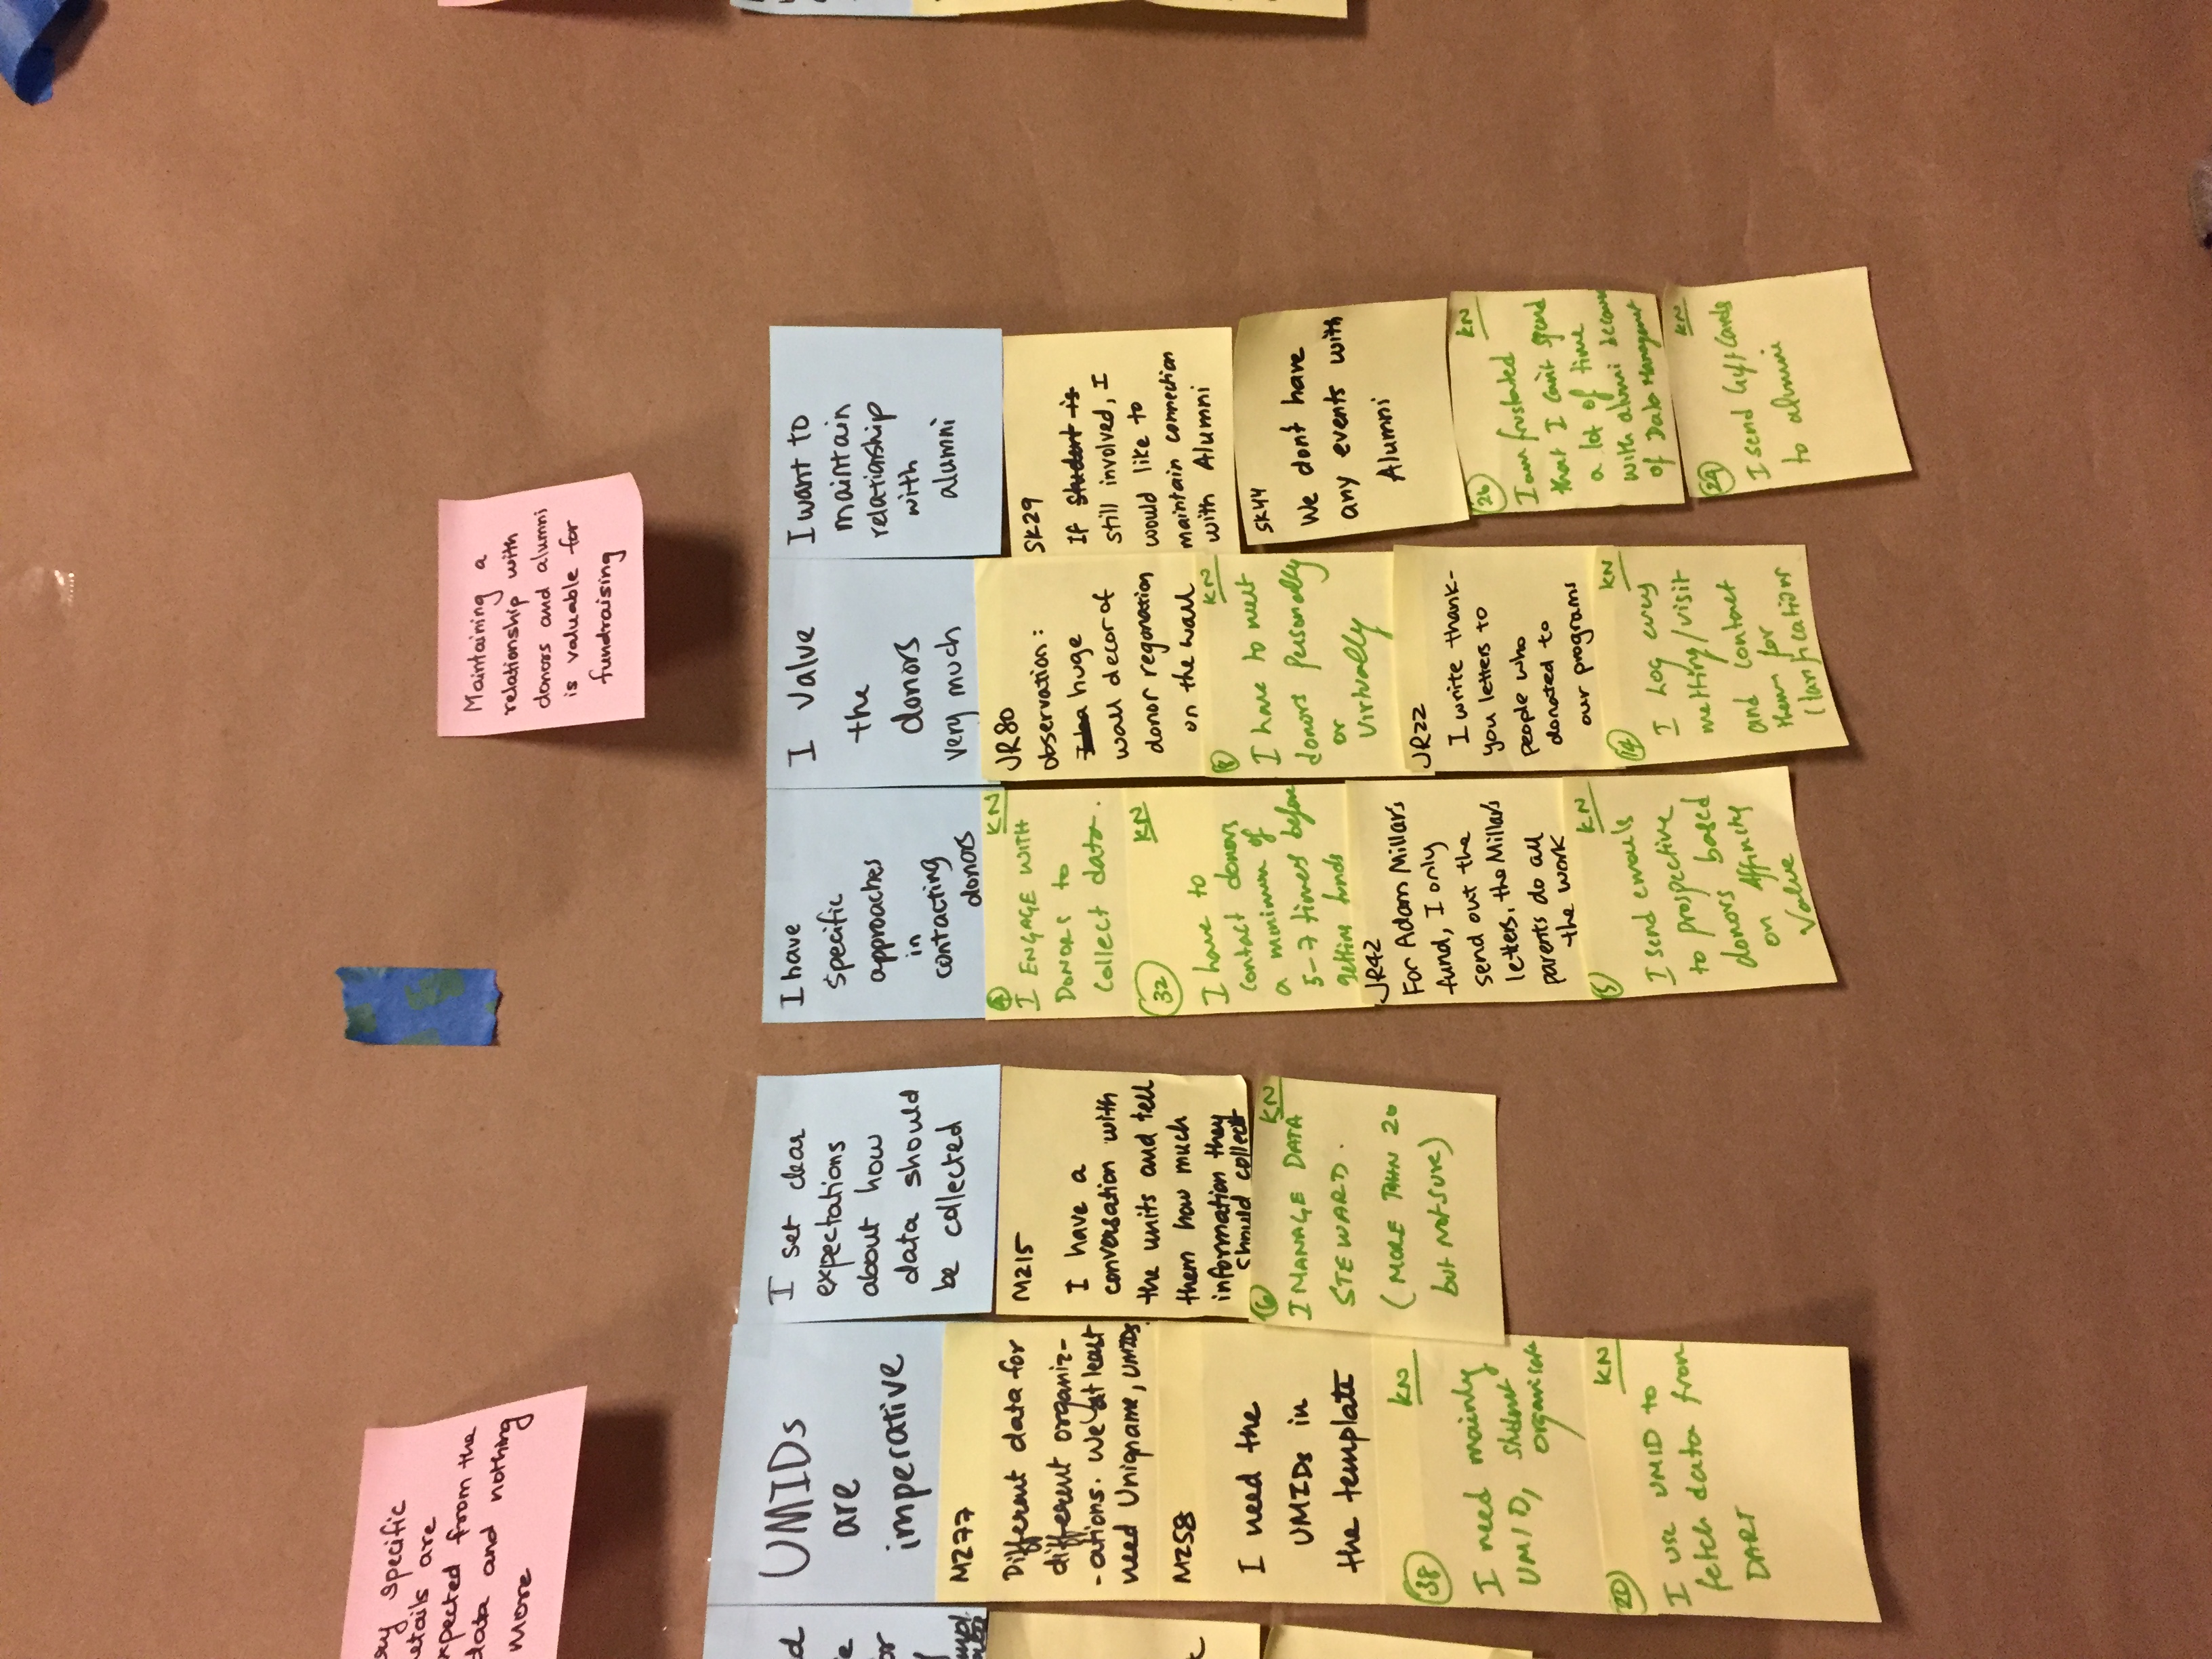 specific
are
expected from the
data and nothing
more
Maintaining a
relationship with
donors and alumni
is valuable for
fundraising
UMIDs
are
imperative
MZ77
Different data for
different organiz-
-ations. We at least
need Uniqname, UMIDs
MZ58
I need the
UMIDs in
the template
38 KN
I need mainly
UMID, student
20 KN
I use UMID to
fetch data from
DART
I set clear
expectations
about how
data should
be collected
MZ15
I have a
conversation with
the units and tell
them how much
information they
should collect
6 KN
I MANAGE DATA
STEWARD.
(MORE THAN 20
but not sure)
I have
specific
approaches
in
contacting
donors
4 KN
I ENGAGE WITH
DONORS to
collect data.
32 KN
I have to
contact donors
a minimum of
5-7 times before
getting funds
JR42
For Adam Millar's
fund, I only
send out the
letters, the Millar's
parents do all
the work
5 KN
I send emails
to prospective
donors based
on Affinity
Value
I value
the
donors
very much
JR80
observation:
huge
wall decor of
donor regonation
on the wall
8 KN
I have to meet
donors personally
or
virtually
JR22
I write thank-
you letters to
people who
donated to
our programs
14 KN
I Log every
metting/visit
and contact
them for
Clarifications
I want to
maintain
relationship
with
alumni
SK29
If student is
still involved, I
would like to
maintain connection
with Alumni
SK44
We dont have
any events with
Alumni
26 KN
I am frustated
that I can't spend
a lot of time
with alumni because
of Data Management
29 KN
I send Gift Cards
to alumni